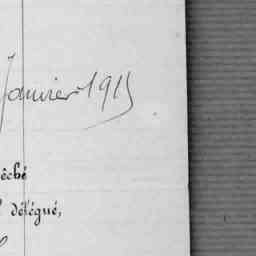 Janvier 1915
êché
délégué,